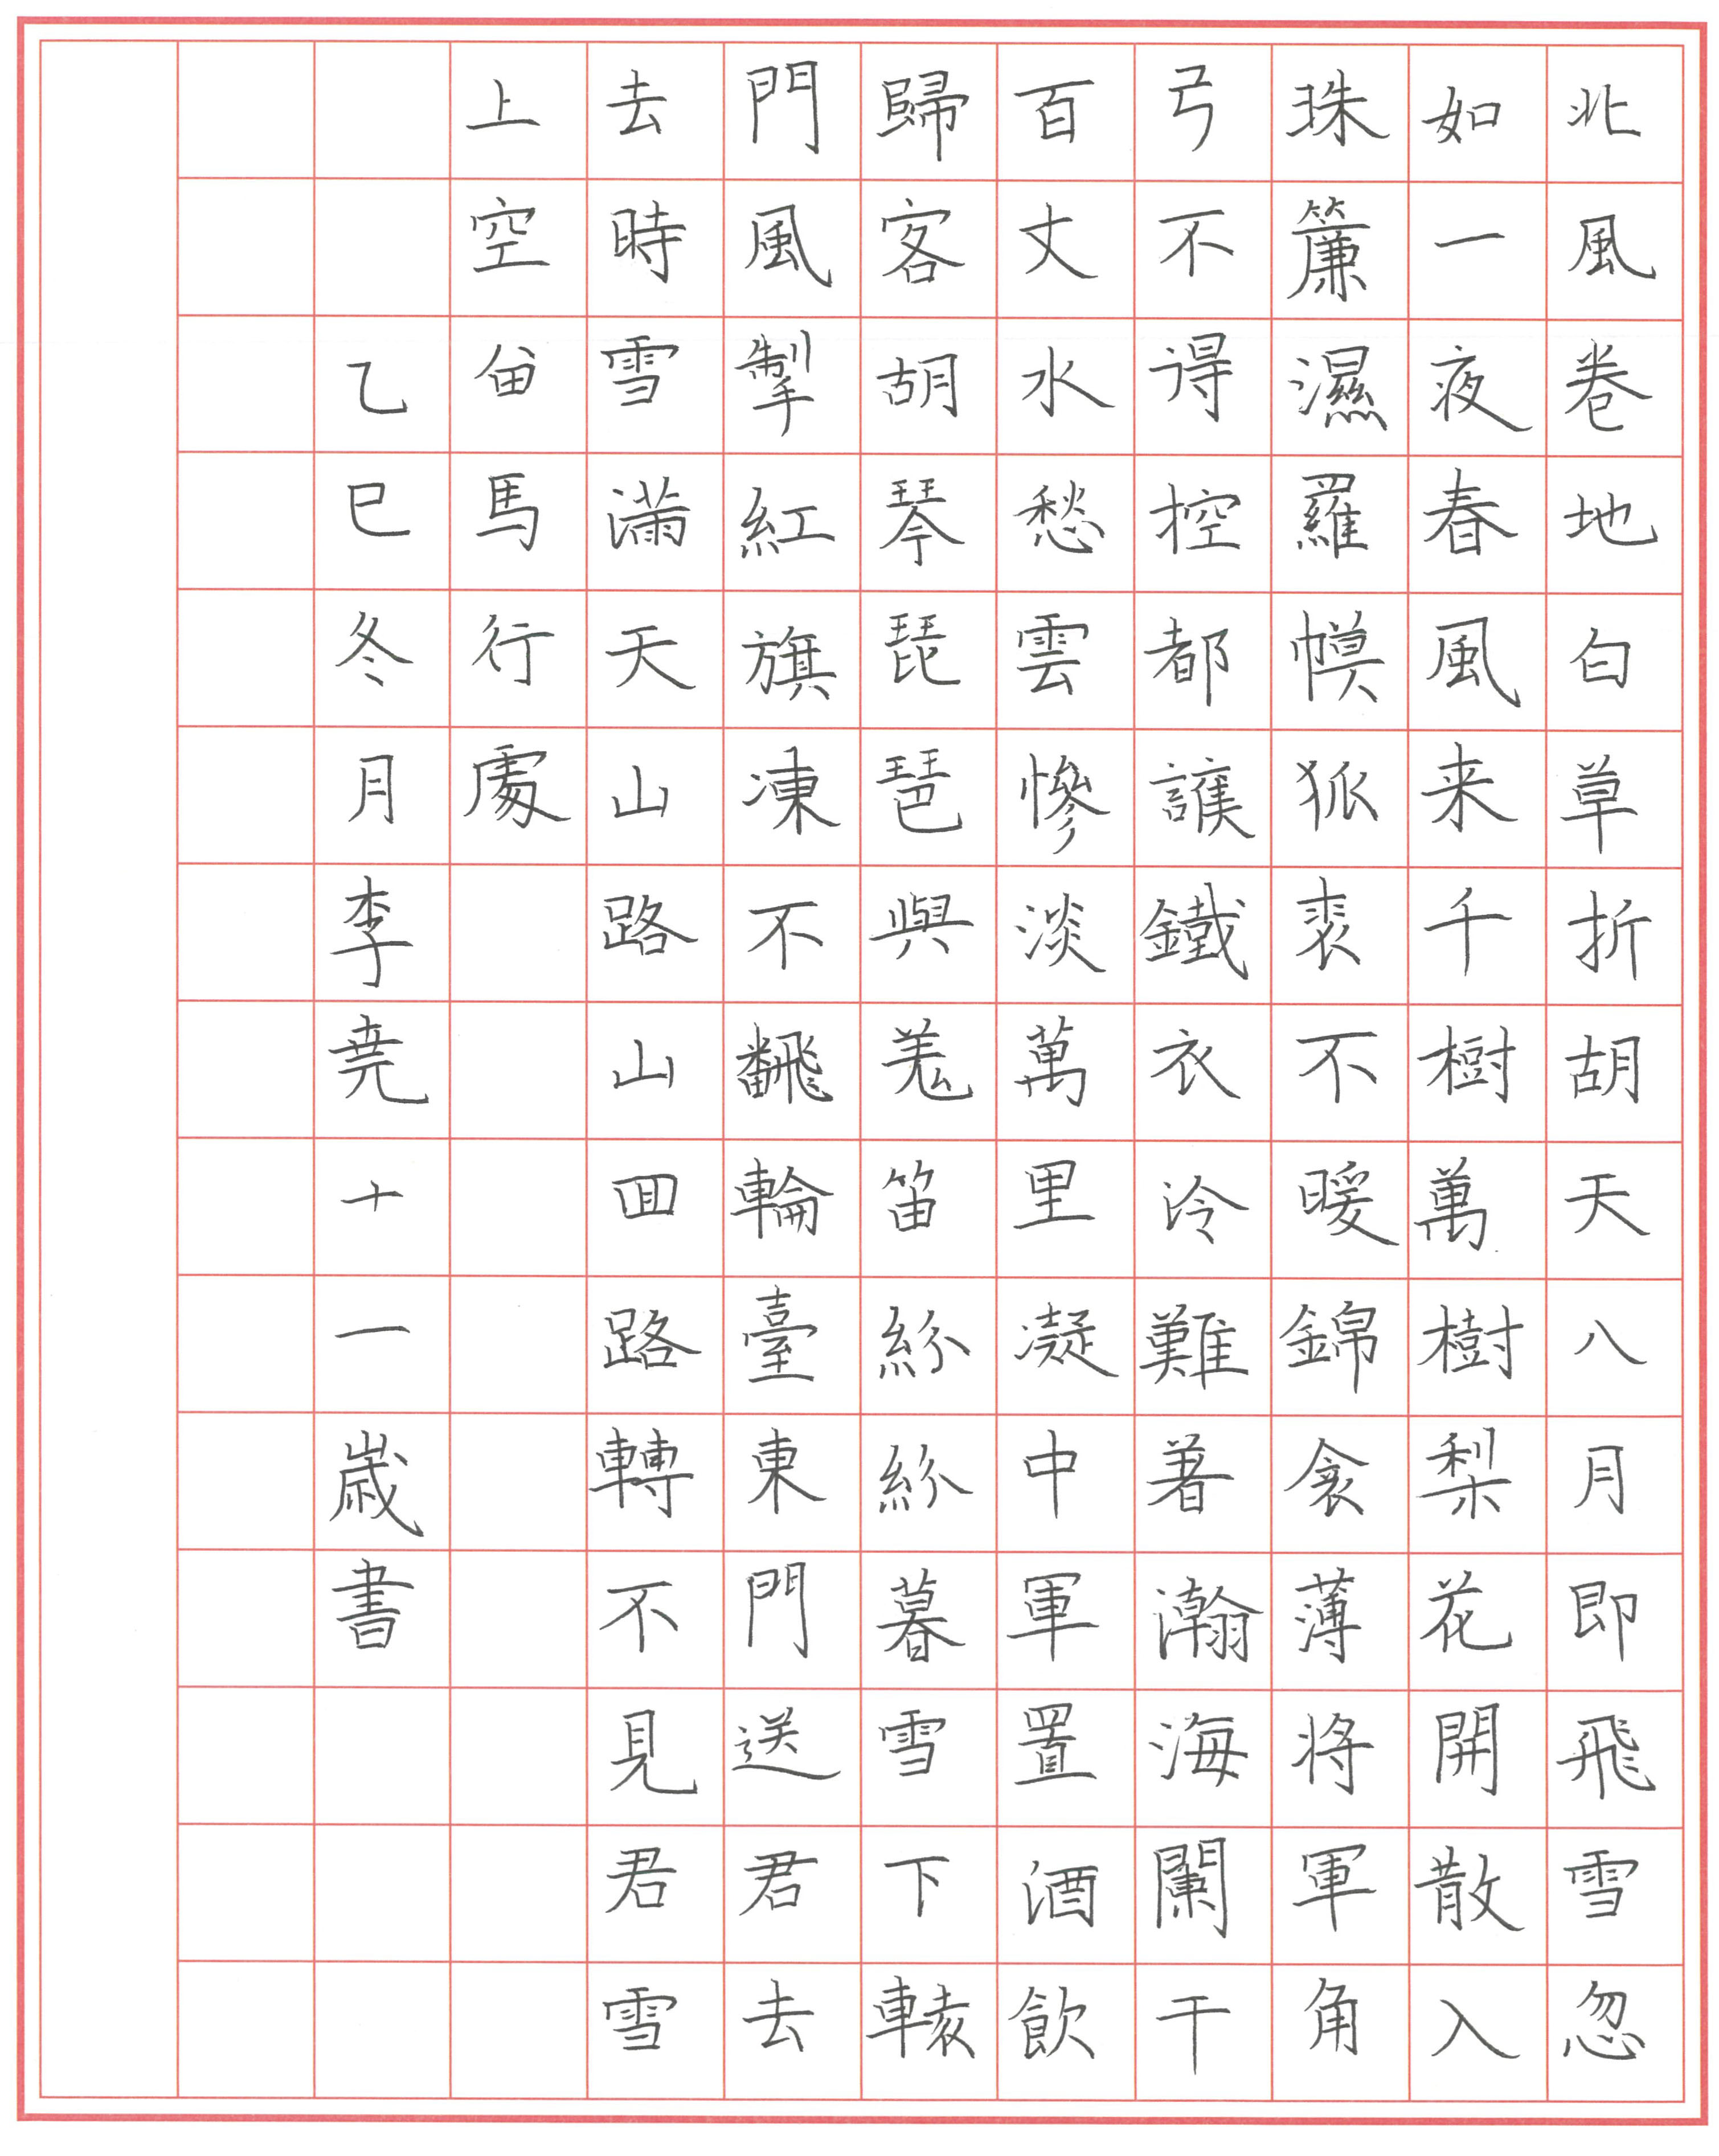 北風卷地白草折胡天八月即飛雪忽
如一夜春風来千樹萬樹梨花開散入
珠簾濕羅幙狐裘不暖錦衾薄將軍角
弓不得控都護鐵衣冷難著瀚海闌干
百丈水愁雲慘淡萬里凝中軍置酒飲
歸客胡琴琵琶與羗笛紛紛暮雪下轅
門風掣紅旗凍不飜輪臺東門送君去
去時雪滿天山路山囬路轉不見君雪
上空留馬行處
乙巳冬月李尭十一歲書